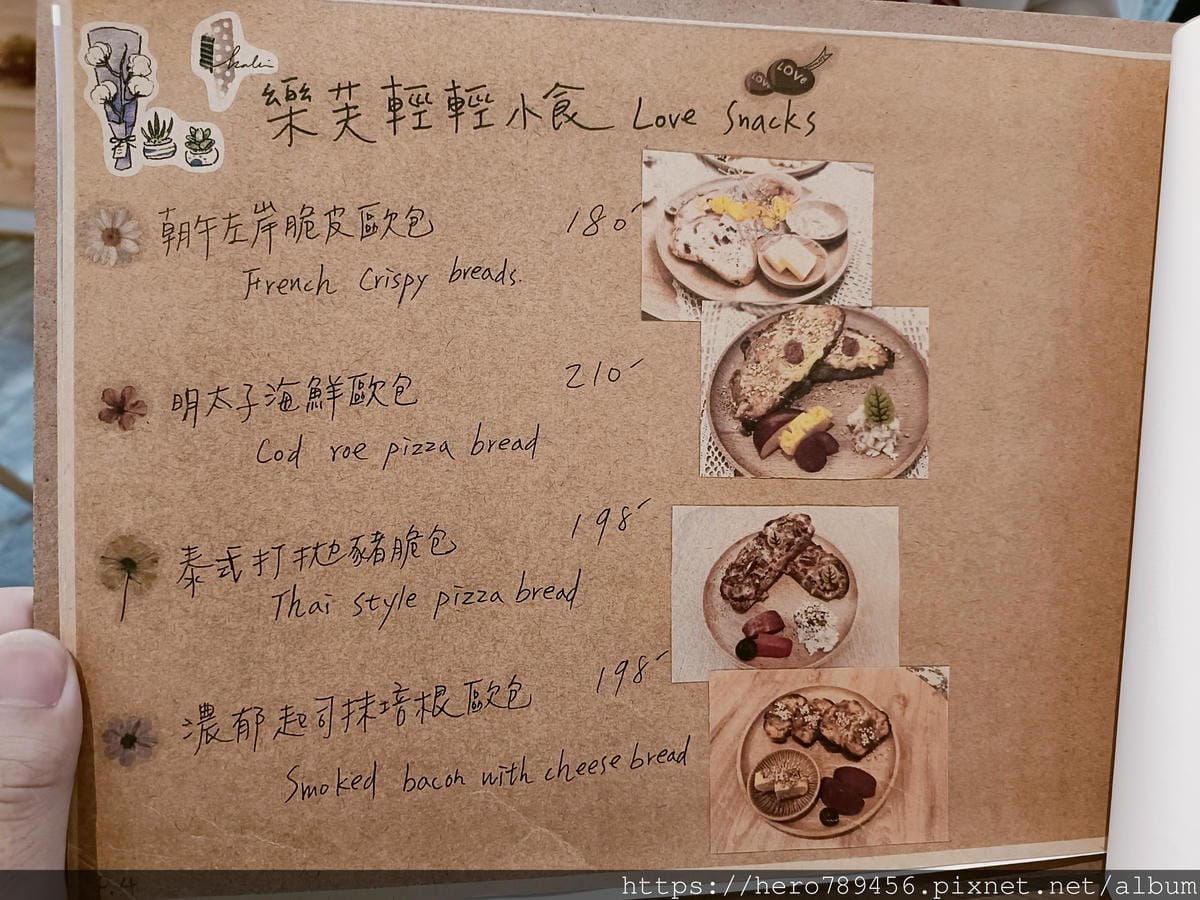 樂芙輕輕小食 Love Snacks
LOVE
朝午左岸脆皮歐包 180
French Crispy breads.
明太子海鮮歐包 210
Cod roe pizza bread
泰式打拋豬脆包 198
Thai style pizza bread
濃郁起司抹培根歐包 198
Smoked bacon with cheese bread
P.4
https://hero789456.pixnet.net/album